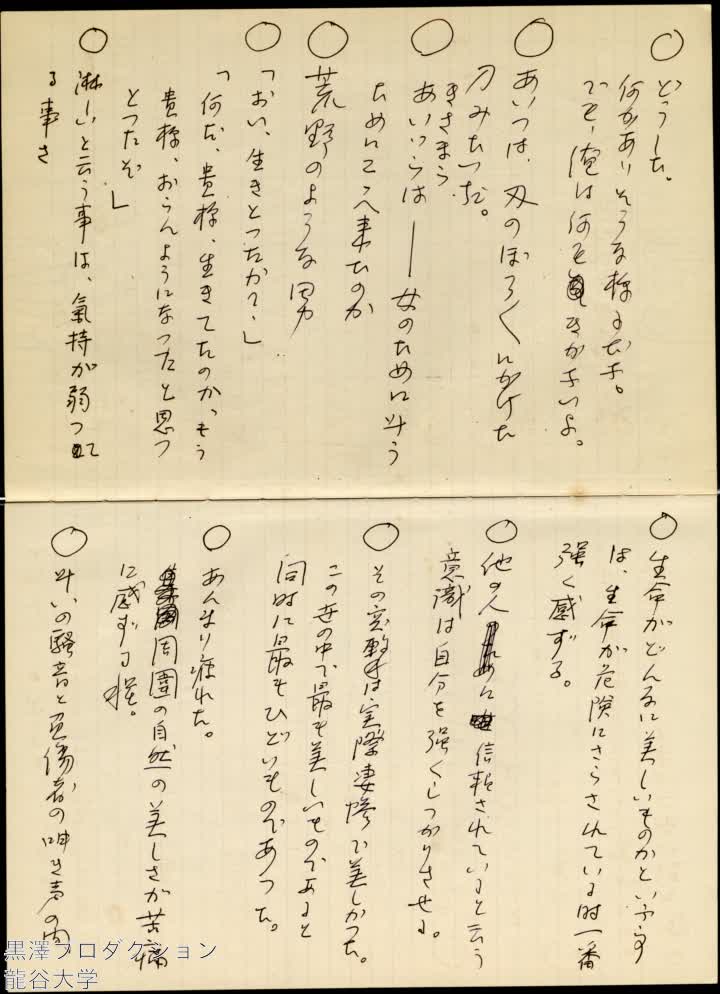 ○ どうした。
何かありそうな様子だナ。
でも、俺は何もきかないよ。
○ あいつは、刃のぼろ〱にかけた
刀みたいだ。
○ きさまら
あいつらは――女のために斗う
ために こゝへ来たのか
○ 荒野のような男
○ 「おい、生きとったか?」
「何だ、貴様、生きてたのか、もう
貴様、おらんようになったと思っ
とったぞ」
○ 淋しいと云う事は、氣持が弱って
る事さ
○ 生命がどんなに美しいものかといふ事
は、生命が危険にさらされている時一番
強く感ずる。
○ 他の人に信頼されていると云う
意識は自分を強くしっかりさせる。
○ その突撃は実際凄惨で美しかった。
この世の中で最も美しいものであると
同時に最もひどいものであった。
○ あんまり疲れた。
周圍の自然の美しさが苦痛
に感ずる程。
○ 斗いの騒音と負傷者の呻き声の内
黒澤プロダクション
龍谷大学